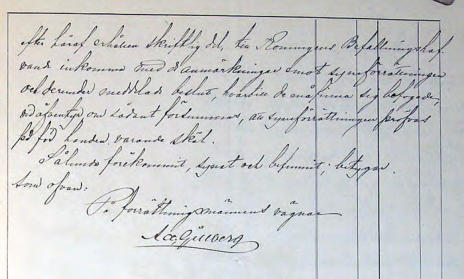 efter häraf erhållen skriftlig del, till Konungens Befallningshaf
vande inkomma med de anmärkningar emot synförrättningen
och derunder meddelad beslut, hvartill de må finna sig befogade,
vid äfventyr om sådant försummas, att synförrättningen pröfvas
på för handen varande skäl.
Sålunda förekommit, synat och befunnit; betygar
som ofvan:
På förrättningsmännens vägnar